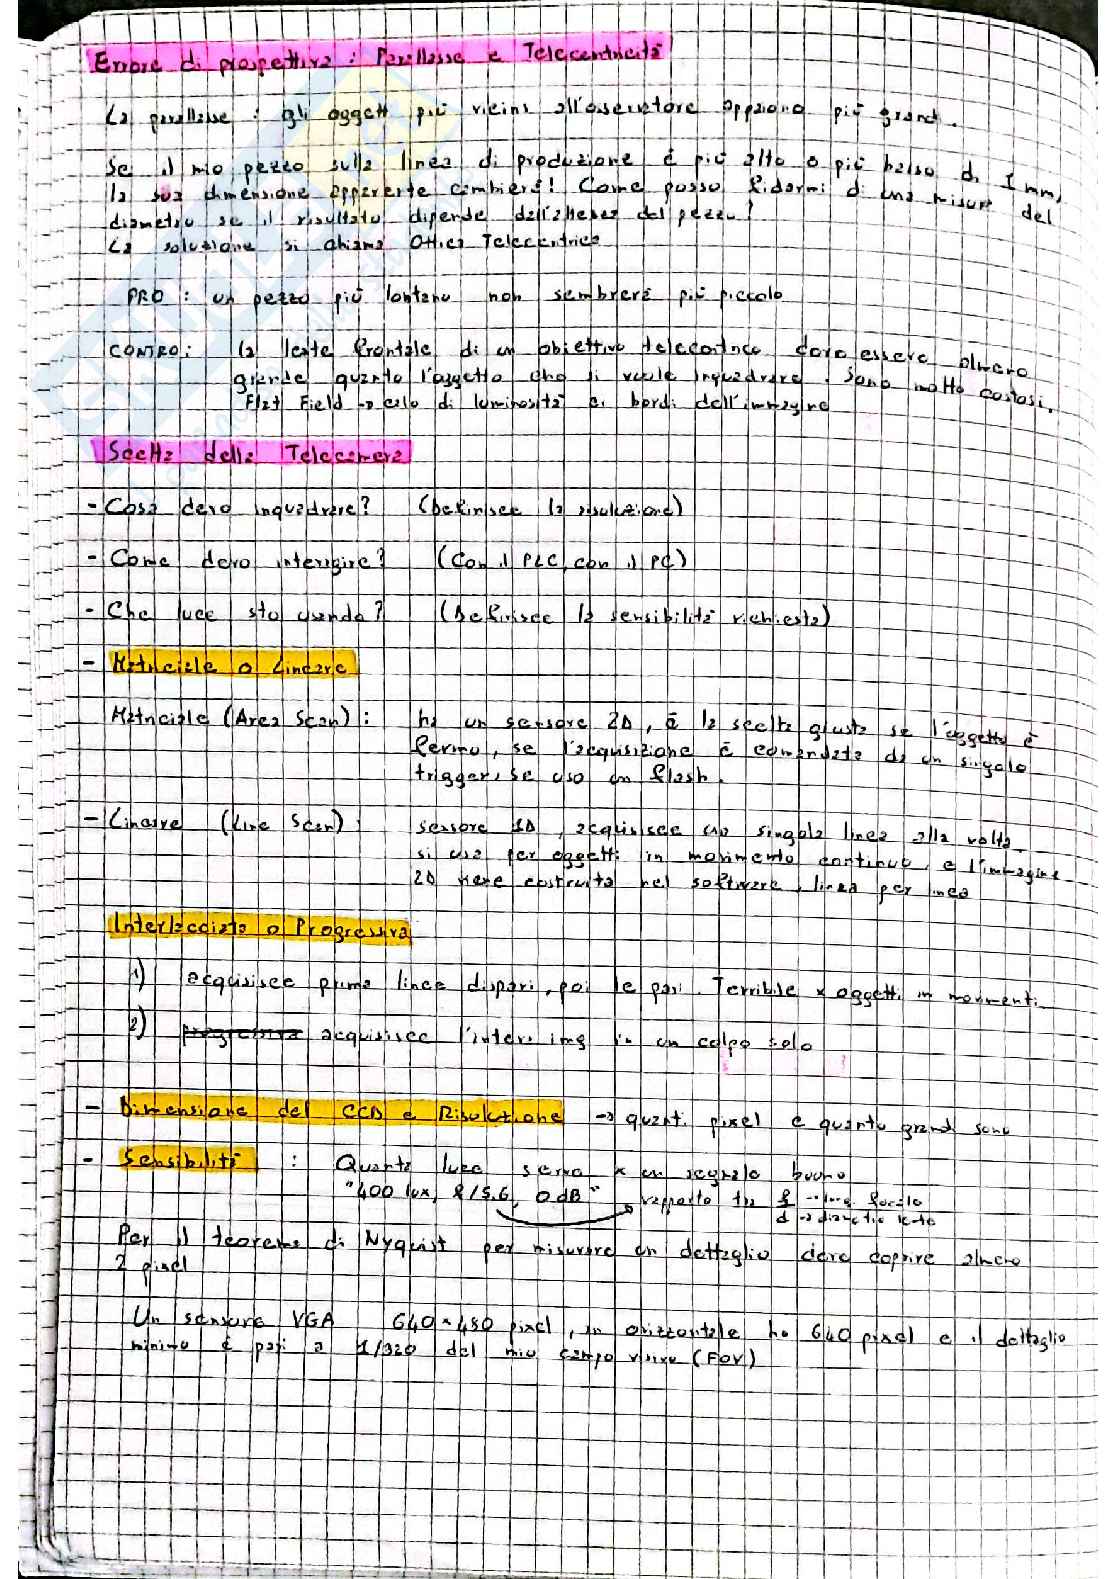 Errore di prospettiva : Parallasse e Telecentricità
La parallasse : gli oggetti più vicini all'osservatore appaiono più grandi.
Se il mio pezzo sulla linea di produzione è più alto o più basso di 1 mm,
la sua dimensione apparente cambierà! Come posso fidarmi di una misura del
diametro se il risultato dipende dall'altezza del pezzo?
La soluzione si chiama Ottica Telecentrica
PRO : un pezzo più lontano non sembrerà più piccolo
CONTRO : la lente frontale di un obiettivo telecentrico dovrà essere almeno
grande quanto l'oggetto che si vuole inquadrare. Sono molto costosi.
Flat Field → calo di luminosità ai bordi dell'immagine
Scelta della Telecamera
- Cosa devo inquadrare? (Definisce la risoluzione)
- Come devo interagire? (Con il PLC, con il PC)
- Che luce sto usando? (Definisce la sensibilità richiesta)
- Matriciale o Lineare
Matriciale (Area Scan) : ha un sensore 2D, è la scelta giusta se l'oggetto è
fermo, se l'acquisizione è comandata da un singolo
trigger, se uso un flash.
- Lineare (Line Scan) : sensore 1D, acquisisce una singola linea alla volta.
si usa per oggetti in movimento continuo, e l'immagine
2D viene costruita nel software, linea per linea
Interlacciata o Progressiva
1) acquisisce prima linee dispari, poi le pari. Terribile x oggetti in movimenti
2) progressiva acquisisce l'intera img in un colpo solo
- Dimensione del CCD e Risoluzione → quanti pixel e quanto grandi sono
- Sensibilità : Quanta luce serve x un segnale buono
"400 lux, f/5.6, 0 dB" rapporto tra f → lung focale
d → diametro lente
Per il teorema di Nyquist per misurare un dettaglio deve coprire almeno
2 pixel
Un sensore VGA 640×480 pixel, in orizzontale ho 640 pixel e il dettaglio
minimo è pari a 1/320 del mio campo visivo (FOV)